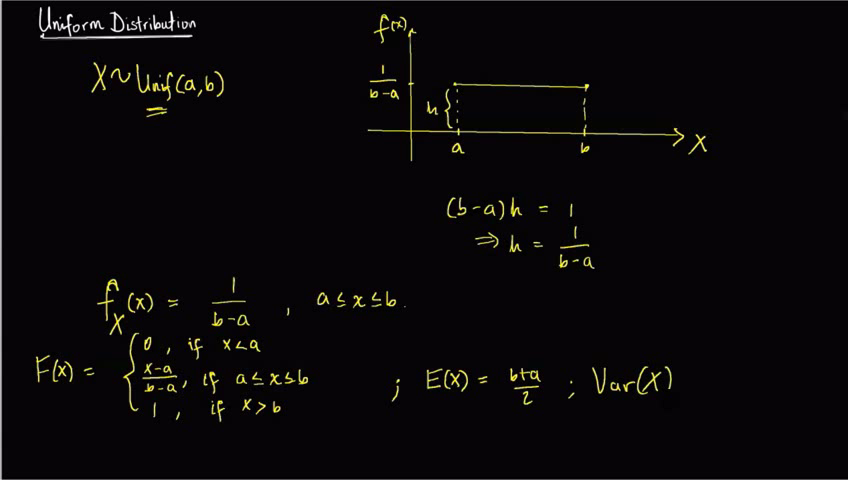 Uniform Distribution
X ~ Unif(a,b)
f(x)
1/(b-a)
h {
a b X
(b-a)h = 1
⇒ h = 1/(b-a)
f_X(x) = 1/(b-a) , a ≤ x ≤ b.
F(x) = { 0 , if x < a
(x-a)/(b-a), if a ≤ x ≤ b
1 , if x > b
; E(X) = (b+a)/2 ; Var(X)